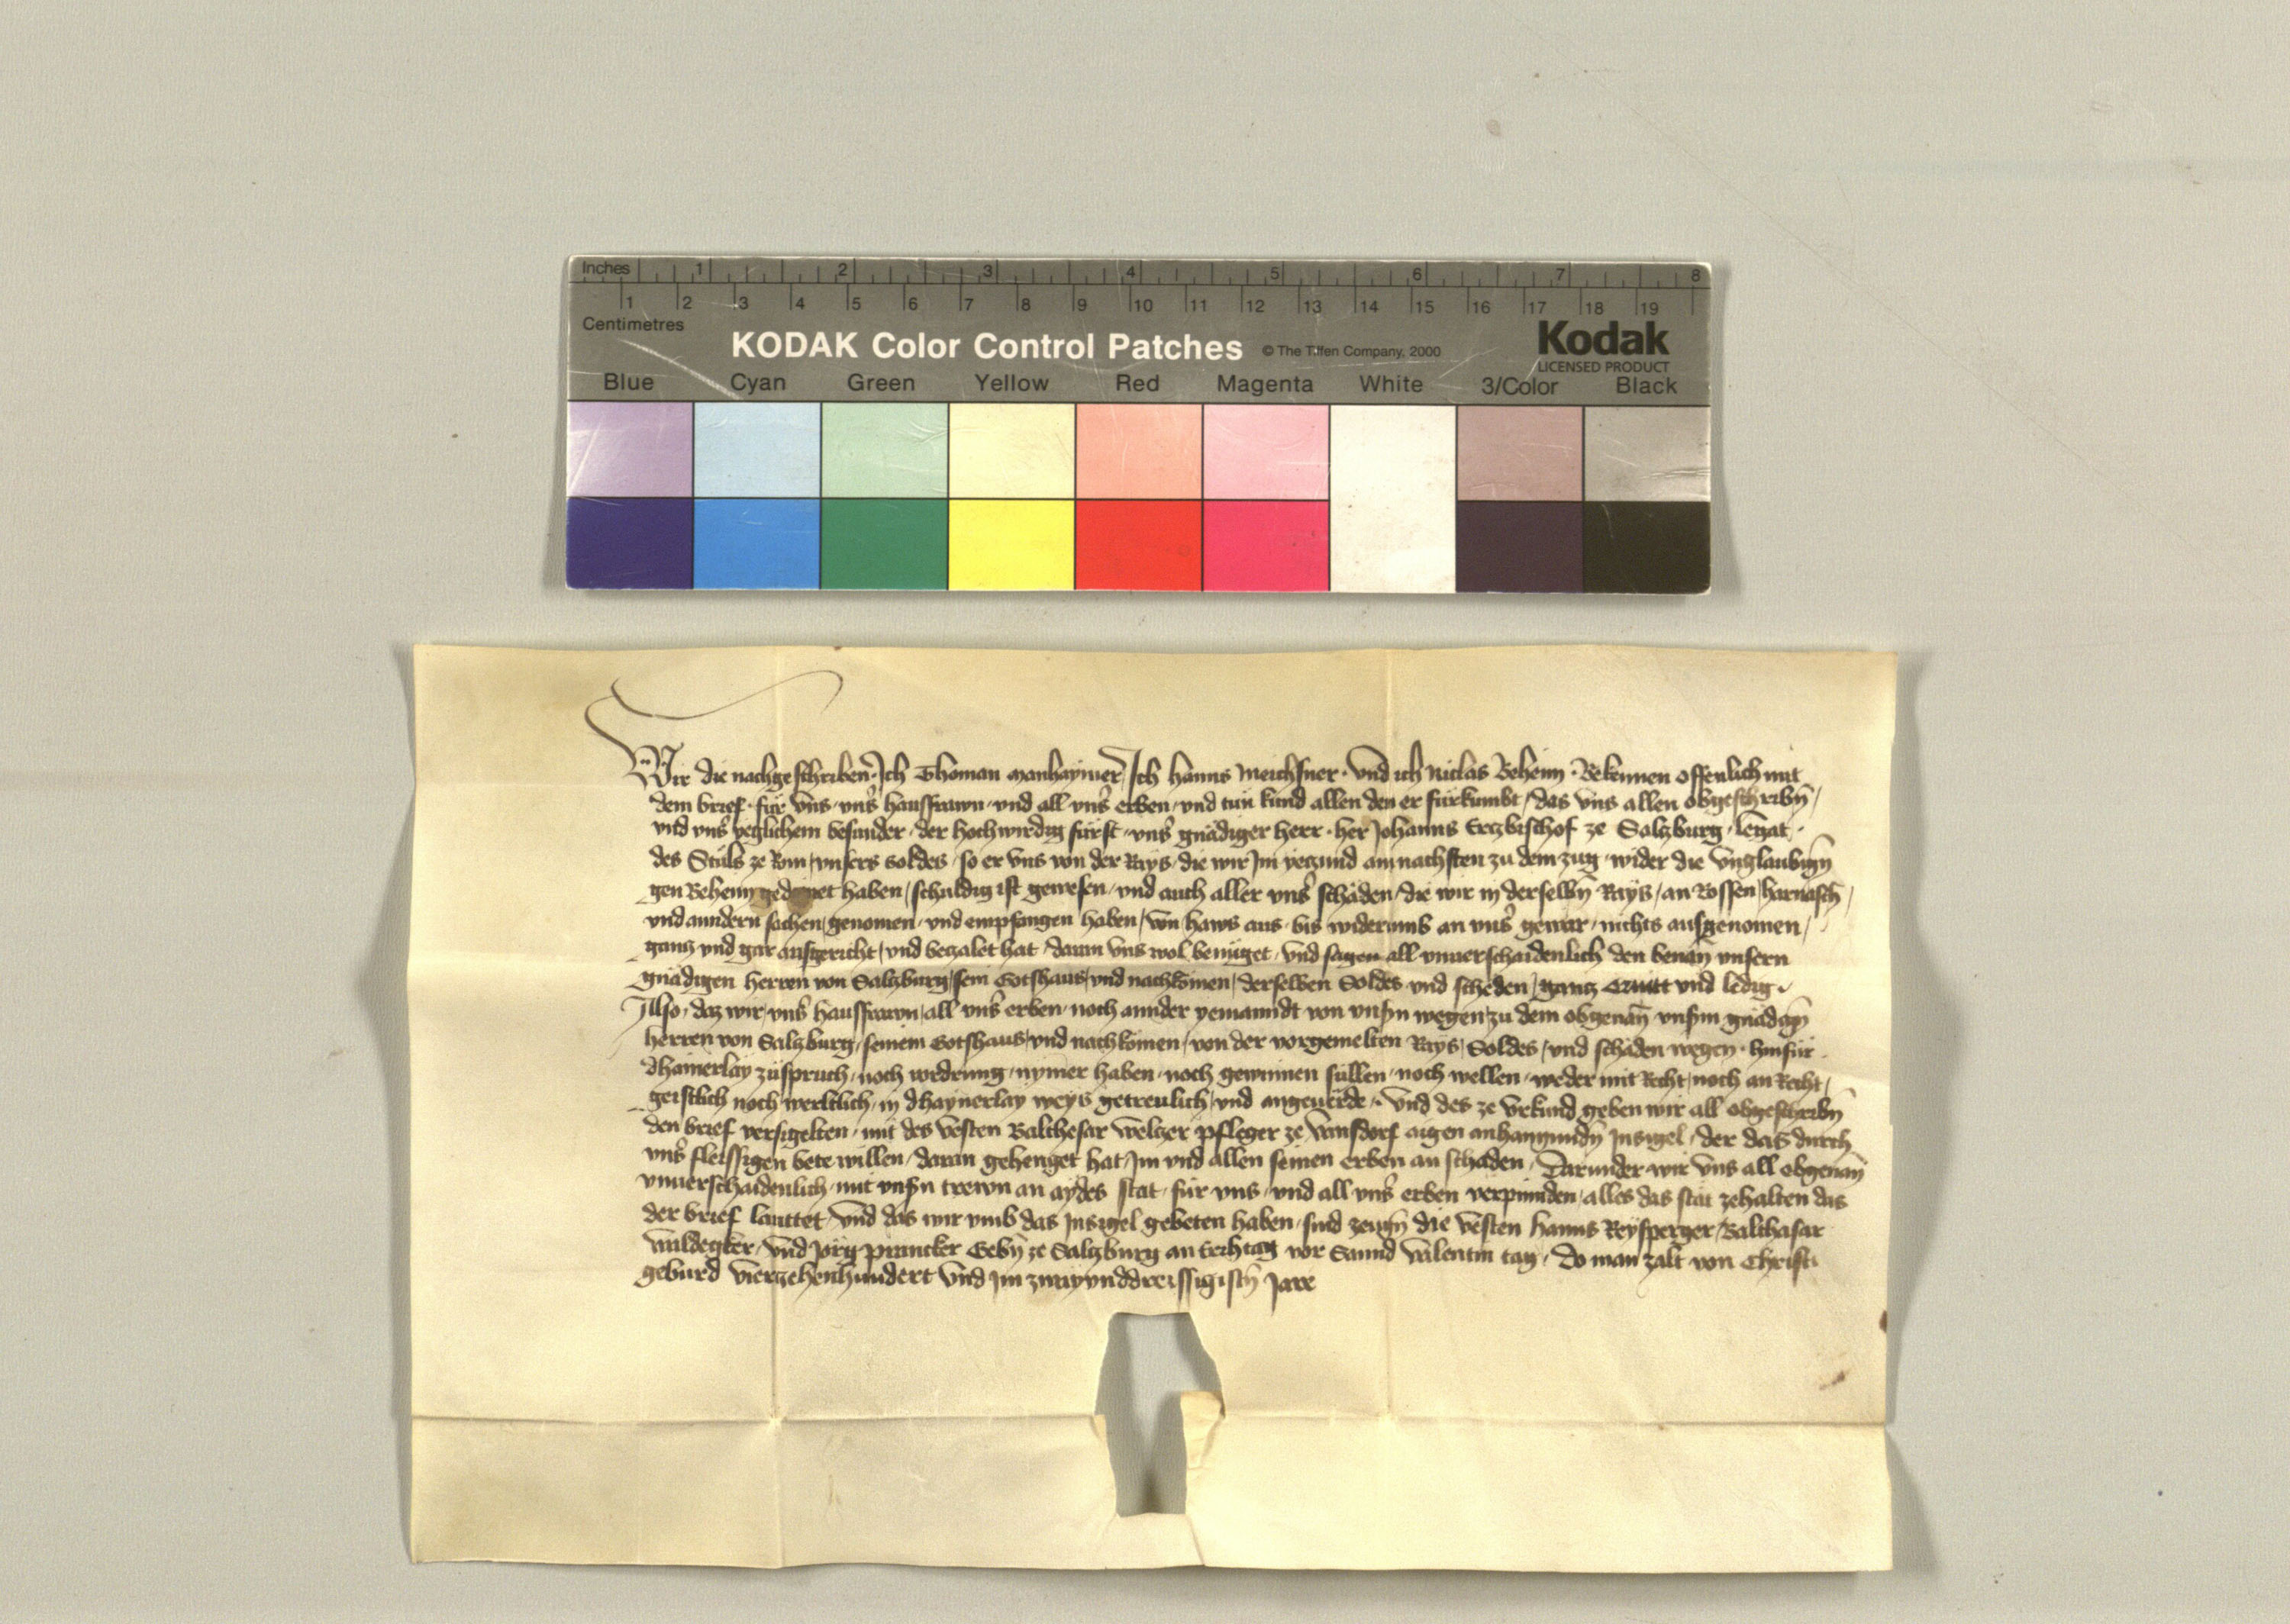 Inches 1 2 3 4 5 6 7 8
1 2 3 4 5 6 7 8 9 10 11 12 13 14 15 16 17 18 19
Centimetres
KODAK Color Control Patches © The Tiffen Company, 2000 Kodak
LICENSED PRODUCT
Blue Cyan Green Yellow Red Magenta White 3/Color Black
Wir die nachgeschriben· Ich Thoman manhaymer / Ich hanns Meichsner · Vnd ich Niclas Behem · Bekennen offenlich mit
dem brief · für vns · vnsˀ hausfrawn · vnd all vnsˀ erben · vnd tün kund allen den er fürkumbt / das vns allen obgeschribn̄ /
vnd vnsˀ yeglichem besunder · der hochwirdig fürst · vnsˀ gnädiger herr · her Johanns Erczbischof ze Salczburg · legat ·
des Stüls ze Rom / vnsers soldes / so er vns von der Rays / die wir Im yeczund am nachsten zu dem zug / wider die vnglaubign̄
gen Behem gedinet haben / schuldig ist gewesen / vnd auch aller vnsˀ schäden / die wir in derselbn̄ Rays / an Rossen / harnasch /
vnd anndern sachen / genomen / vnd empfangen haben / von haws aus / bis widerumb an vnsˀ gewar / nichts ausgenomen /
gancz vnd gar ausgericht / vnd beczalet hat / daran vns wol benüget / vnd sagen all vnuerschaidenlich den benan̄ vnsern
gnädigen herren von Salczburg / sein Gotshaus / vnd nachkömen / derselben Soldes vnd scheden / gancz Quitt vnd ledig ·
Also / daz wir / vnsˀ hausfrawn / all vnsˀ erben / noch annder yemanndt von vnsn̄ wegen / zu dem obgenan̄ vnsn̄m gnädign̄
herren von Salczburg / seinem Gotshaus / vnd nachkömen / von der vorgemelten Rays / Soldes / vnd schäden wegen · hinfür
dhainerlay züspruch / noch vordrung / nymer haben / noch gewinnen süllen / noch wellen / weder mit Recht / noch an Recht /
geistlich noch werltlich / in dhaynerlay weys getreulich / vnd angeuërde · Vnd des ze vrkund geben wir all obgeschribn̄
den brief versigelten / mit des vesten Balthesar Welczer pfleger ze Vansdorf aigen anhanngundn̄ Insigel / der das durch
vnsˀ fleissigen bete willen / daran gehenget hat / Im vnd allen seinen erben an schaden / Darunder wir vns all obgenan̄
vnuerschaidenlich / mit vnsn̄ trewn an aydes stat / für vns / vnd all vnsˀ erben verpinnden / alles das stät zehalten das
der brief lauttet / Vnd das wir vmb das Insigel gebeten haben / sind zeugn̄ die vesten hanns Reysperger / Balthasar
Waldegker / vnd Jörg pruncker Gebn̄ ze Salczburg an Erihtag vor Sannd Valentin tag / Do man zalt von Christi
geburd vierzehenhundert vnd Im zwayunddreissigistn̄ Jare